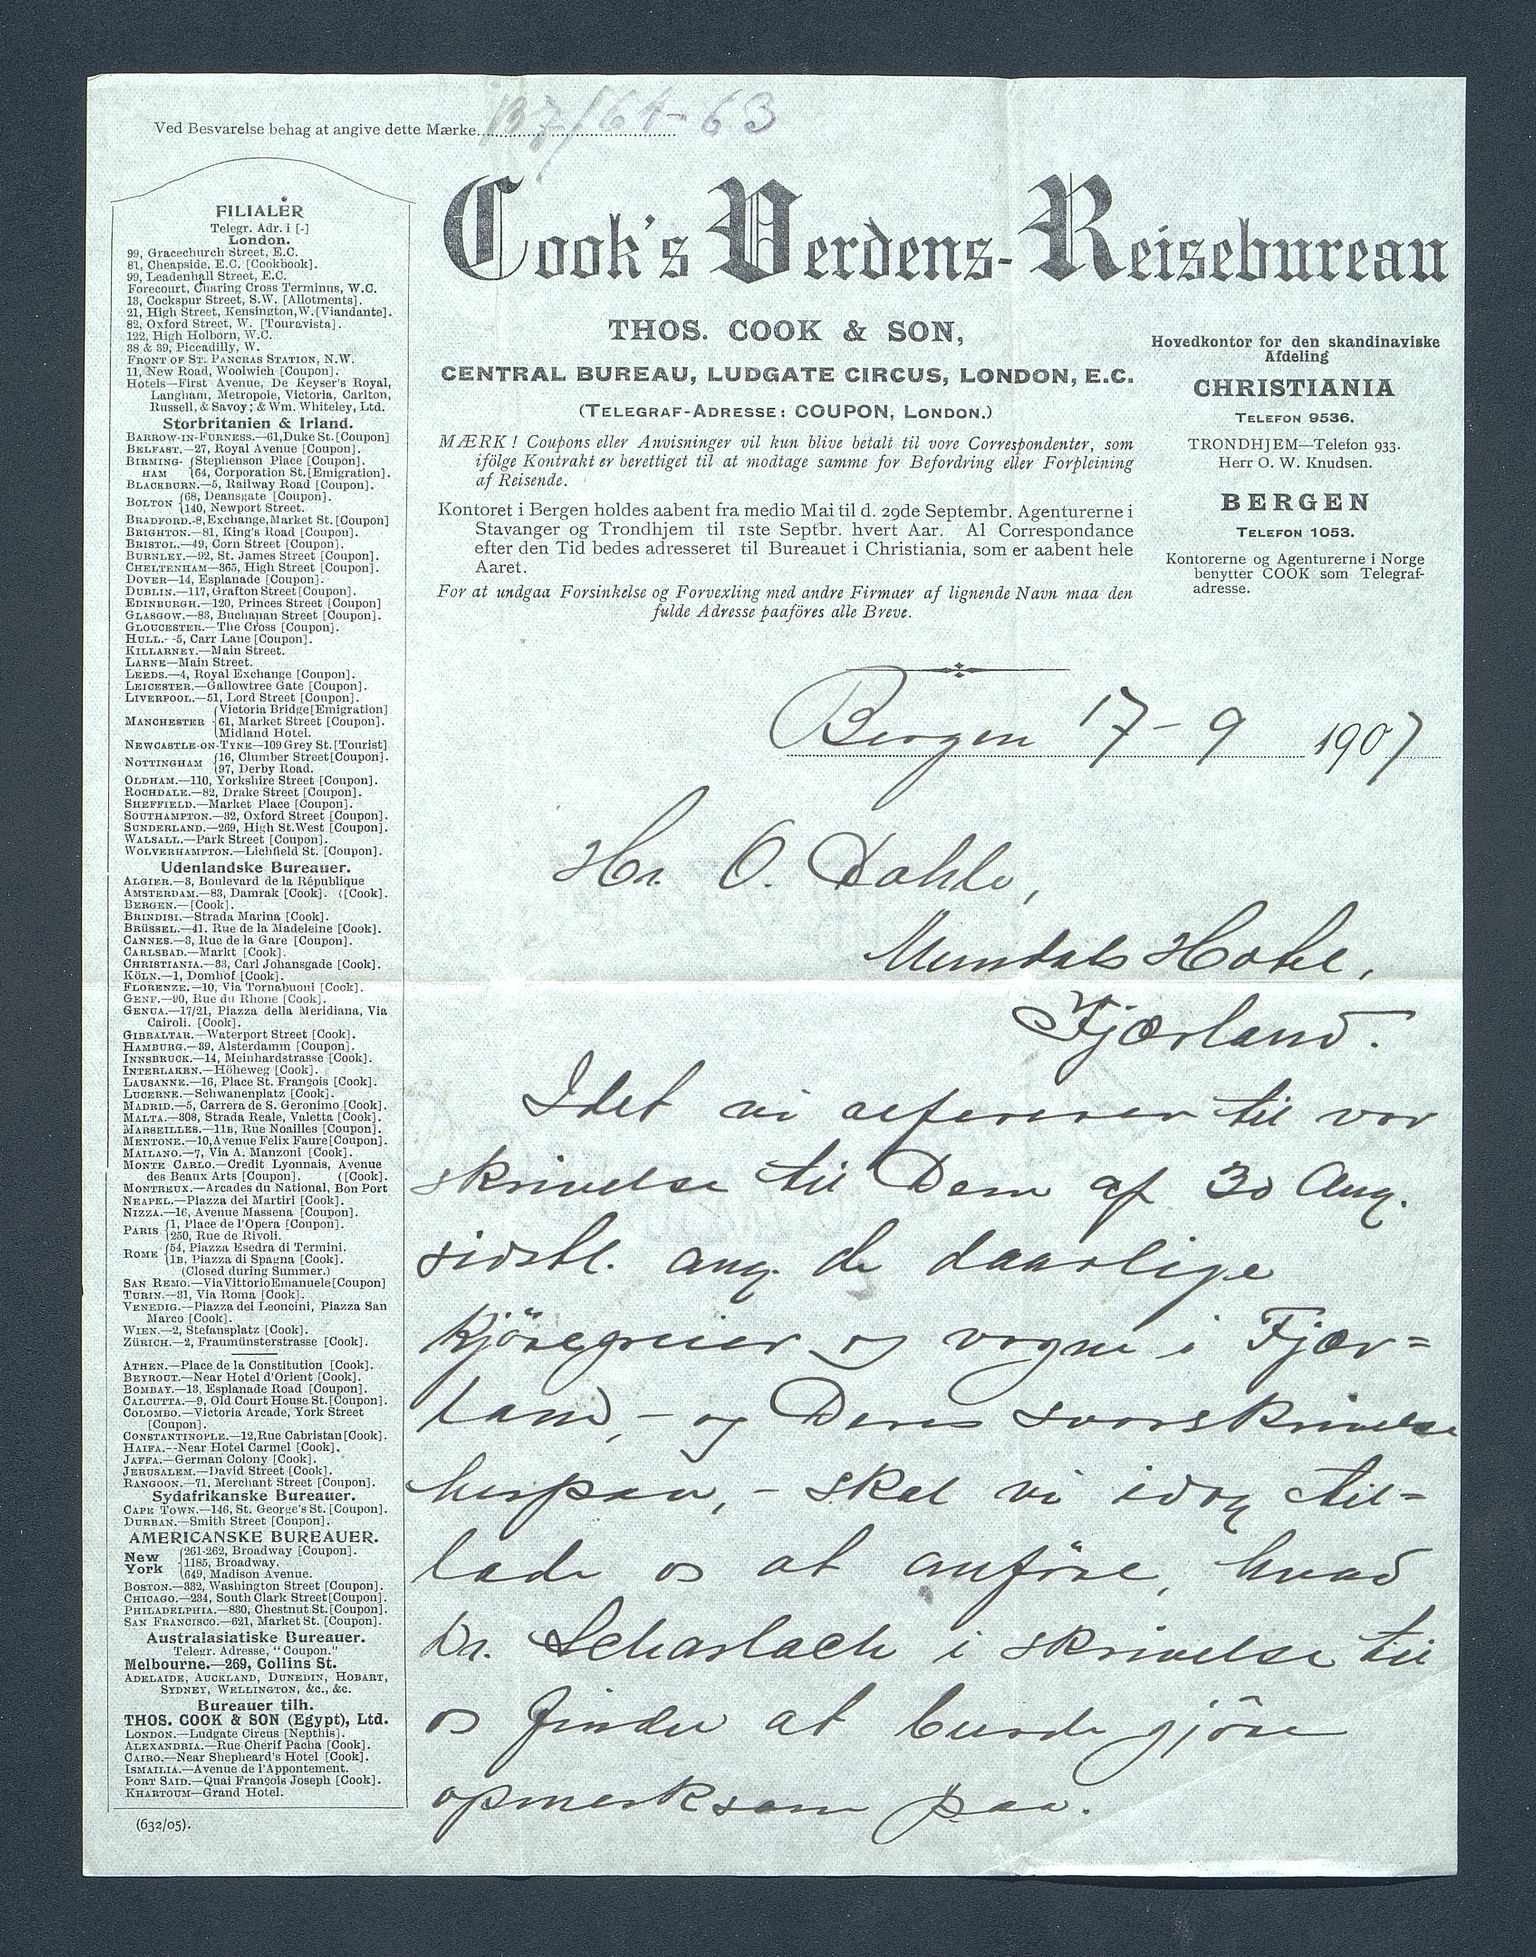 Ved Besvarelse behag at angive dette Mærke 137/64-63
Cook's Verdens-Reisebureau
THOS. COOK & SON,
CENTRAL BUREAU, LUDGATE CIRCUS, LONDON, E.C.
(TELEGRAF-ADRESSE: COUPON, LONDON.)
MÆRK! Coupons eller Anvisninger vil kun blive betalt til vore Correspondenter, som
ifölge Kontrakt er berettiget til at modtage samme for Befordring eller Forpleining
af Reisende.
Kontoret i Bergen holdes aabent fra medio Mai til d. 29de Septembr. Agenturerne i
Stavanger og Trondhjem til 1ste Septbr. hvert Aar. Al Correspondance
efter den Tid bedes adresseret til Bureauet i Christiania, som er aabent hele
Aaret.
For at undgaa Forsinkelse og Forvexling med andre Firmaer af lignende Navn maa den
fulde Adresse paaföres alle Breve.
Hovedkontor for den skandinaviske
Afdeling
CHRISTIANIA
TELEFON 9536.
TRONDHJEM—Telefon 933.
Herr O. W. Knudsen.
BERGEN
TELEFON 1053.
Kontorerne og Agenturerne i Norge
benytter COOK som Telegraf-
adresse.
FILIALER
Telegr. Adr. i [-]
London.
99, Gracechurch Street, E.C.
81, Cheapside, E.C. [Cookbook].
99, Leadenhall Street, E.C.
Forecourt, Charing Cross Terminus, W.C.
13, Cockspur Street, S.W. [Allotments].
21, High Street, Kensington, W. [Viandante].
82, Oxford Street, W. [Touravista].
122, High Holborn, W.C.
38 & 39, Piccadilly, W.
FRONT OF ST. PANCRAS STATION, N.W.
11, New Road, Woolwich [Coupon].
Hotels—First Avenue, De Keyser's Royal,
Langham, Metropole, Victoria, Carlton,
Russell, & Savoy; & Wm. Whiteley, Ltd.
Storbritanien & Irland.
BARROW-IN-FURNESS.—61, Duke St. [Coupon]
BELFAST.—27, Royal Avenue [Coupon].
BIRMING- {Stephenson Place [Coupon].
HAM {64, Corporation St. [Emigration].
BLACKBURN.—5, Railway Road [Coupon].
BOLTON {68, Deansgate [Coupon].
{140, Newport Street.
BRADFORD.-8, Exchange, Market St. [Coupon]
BRIGHTON.—81, King's Road [Coupon].
BRISTOL.—49, Corn Street [Coupon].
BURNLEY.—92, St. James Street [Coupon].
CHELTENHAM—365, High Street [Coupon].
DOVER—14, Esplanade [Coupon].
DUBLIN.—117, Grafton Street [Coupon].
EDINBURGH.—120, Princes Street [Coupon]
GLASGOW.—83, Buchanan Street [Coupon].
GLOUCESTER.—The Cross [Coupon].
HULL.—5, Carr Lane [Coupon].
KILLARNEY.—Main Street.
LARNE—Main Street.
LEEDS.—4, Royal Exchange [Coupon].
LEICESTER.—Gallowtree Gate [Coupon].
LIVERPOOL.—51, Lord Street [Coupon].
{Victoria Bridge [Emigration]
MANCHESTER {61, Market Street [Coupon].
{Midland Hotel.
NEWCASTLE-ON-TYNE—109 Grey St. [Tourist]
NOTTINGHAM {16, Clumber Street [Coupon].
{97, Derby Road.
OLDHAM.—110, Yorkshire Street [Coupon].
ROCHDALE.—82, Drake Street [Coupon].
SHEFFIELD.—Market Place [Coupon].
SOUTHAMPTON.—32, Oxford Street [Coupon].
SUNDERLAND.—269, High St. West [Coupon].
WALSALL.—Park Street [Coupon].
WOLVERHAMPTON.—Lichfield St. [Coupon].
Udenlandske Bureauer.
ALGIER.—3, Boulevard de la République
AMSTERDAM.—83, Damrak [Cook]. ([Cook].
BERGEN.—[Cook].
BRINDISI.—Strada Marina [Cook].
BRÜSSEL.—41, Rue de la Madeleine [Cook].
CANNES.—3, Rue de la Gare [Coupon].
CARLSBAD.—Markt [Cook].
CHRISTIANIA.—33, Carl Johansgade [Cook].
KÖLN.—1, Domhof [Cook].
FLORENZE.—10, Via Tornabuoni [Cook].
GENF.—90, Rue du Rhone [Cook].
GENUA.—17/21, Piazza della Meridiana, Via
Cairoli. [Cook].
GIBRALTAR.—Waterport Street [Cook].
HAMBURG.—39, Alsterdamm [Coupon].
INNSBRUCK.—14, Meinhardstrasse [Cook].
INTERLAKEN.—Höheweg [Cook].
LAUSANNE.—16, Place St. François [Cook].
LUCERNE.—Schwanenplatz [Cook].
MADRID.—5, Carrera de S. Geronimo [Cook].
MALTA.—308, Strada Reale, Valetta [Cook].
MARSEILLES.—11B, Rue Noailles [Coupon].
MENTONE.—10, Avenue Felix Faure [Coupon].
MAILANO.—7, Via A. Manzoni [Cook].
MONTE CARLO.—Credit Lyonnais, Avenue
des Beaux Arts [Coupon]. ([Cook].
MONTREUX.—Arcades du National, Bon Port
NEAPEL.—Piazza dei Martiri [Cook].
NIZZA.—16, Avenue Massena [Coupon].
PARIS {1, Place de l'Opera [Coupon].
{250, Rue de Rivoli.
ROME {54, Piazza Esedra di Termini.
{1B, Piazza di Spagna [Cook].
(Closed during Summer.)
SAN REMO.—Via Vittorio Emanuele [Coupon]
TURIN.—31, Via Roma [Cook].
VENEDIG.—Piazza dei Leoncini, Piazza San
Marco [Cook].
WIEN.—2, Stefansplatz [Cook].
ZÜRICH.—2, Fraumünsterstrasse [Cook].
ATHEN.—Place de la Constitution [Cook].
BEYROUT.—Near Hotel d'Orient [Cook].
BOMBAY.—13, Esplanade Road [Coupon].
CALCUTTA.—9, Old Court House St. [Coupon].
COLOMBO.—Victoria Arcade, York Street
[Coupon].
CONSTANTINOPLE.—12, Rue Cabristan [Cook].
HAIFA.--Near Hotel Carmel [Cook].
JAFFA.—German Colony [Cook].
JERUSALEM.—David Street [Cook].
RANGOON.—71, Merchant Street [Coupon].
Sydafrikanske Bureauer.
CAPE TOWN.—146, St. George's St. [Coupon].
DURBAN.—Smith Street [Coupon].
AMERICANSKE BUREAUER.
{261-262, Broadway [Coupon].
New York {1185, Broadway.
{649, Madison Avenue.
BOSTON.—332, Washington Street [Coupon].
CHICAGO.—234, South Clark Street [Coupon].
PHILADELPHIA.—830, Chestnut St. [Coupon].
SAN FRANCISCO.—621, Market St. [Coupon].
Australasiatiske Bureauer.
Telegr. Adresse, "Coupon."
Melbourne.—269, Collins St.
ADELAIDE, AUCKLAND, DUNEDIN, HOBART,
SYDNEY, WELLINGTON, &c., &c.
Bureauer tilh.
THOS. COOK & SON (Egypt), Ltd.
LONDON.—Ludgate Circus [Nepthis].
ALEXANDRIA.—Rue Cherif Pacha [Cook].
CAIRO.—Near Shepheard's Hotel [Cook].
ISMAILIA.—Avenue de l'Appontement.
PORT SAID.—Quai François Joseph [Cook].
KHARTOUM—Grand Hotel.
(632/05).
Bergen 17-9 1907
Hr. O. Dahle,
Mundals Hotel,
Fjærland.
Idet vi refererer til vor
skrivelse til Dem af 30 Aug.
sidstl. ang. de daarlige
kjöregreier og vogne i Fjær=
land, - og Deres svarskrivelse
herpaa, - skal vi idag til=
lade os at anföre, hvad
Dr. Scharlach i skrivelse til
os finder at burde gjöre
opmerksom paa.